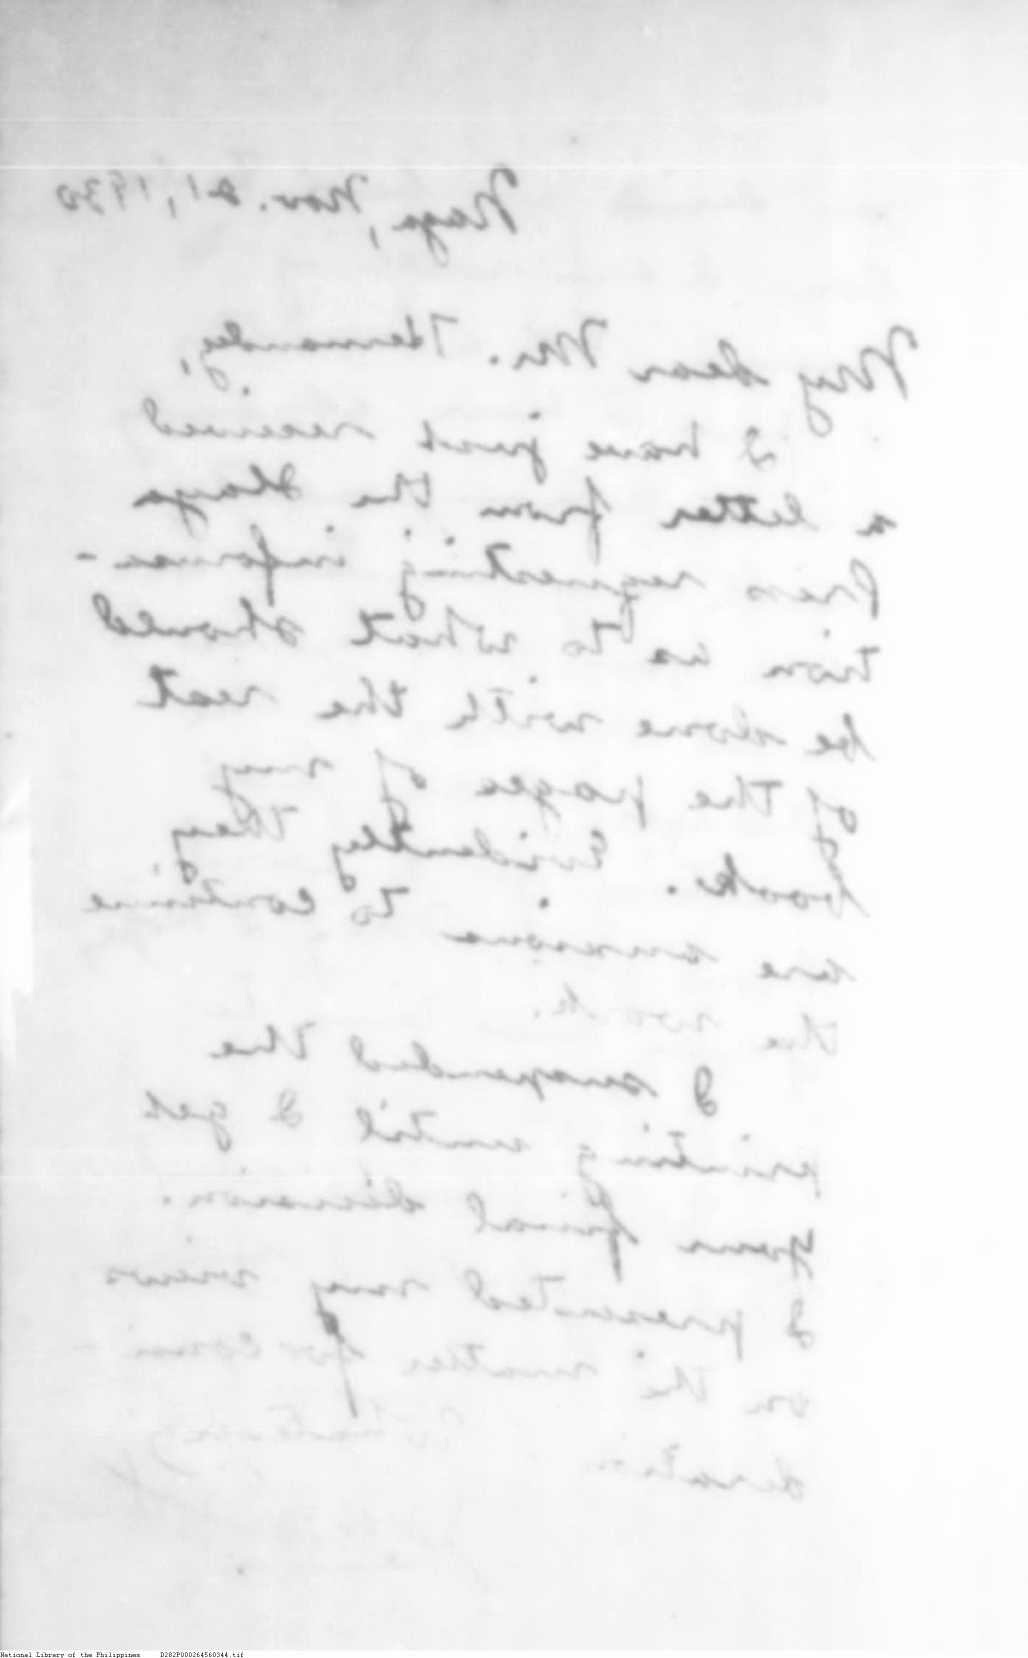 Naga, Nov. 21, 1930
My dear Mr. Hernandez,
I have just received
a letter from the
Press requesting informa-
tion as to what should
be done with the rest
of the pages of my
book. Evidently they
are anxious to continue
the work.
I suspended the
printing until I get
your final decision.
I presented my views
on the matter for con-
sideration
National Library of the Philippines D282P000264560344.tif